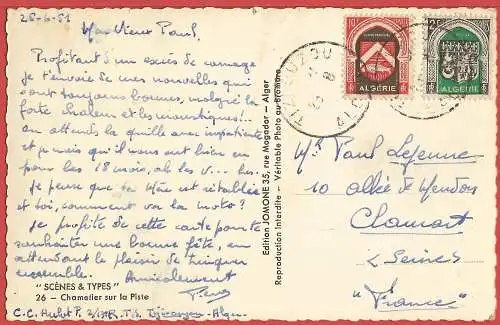 28-6-51
Mon Vieux Paul,
Profitant d'un excès de courage
je t'envoie de mes nouvelles qui
sont toujours bonnes, malgré la
forte chaleur et les moustiques!..
on attend la quille avec impatience
et je
mais qu'il nous ont bien eu
pour les 18 mois, ah les V... hs.
Je pense que ta Mère est rétablie
et toi, comment va la moto?
Je profite de cette carte pour te
souhaiter une bonne fête, en
attendant le plaisir de trinquer
ensemble. Amicalement
"SCÈNES & TYPES"
26 - Chamelier sur la Piste
Edition JOMONE 35, rue Mogador — Alger
Reproduction Interdite — Véritable Photo au Bromure
TIZI-OUZOU
ALGÉRIE
ALGÉRIE
Mr Paul Lejeune
10 allée de Meudon
Clamart
(Seine)
"France"